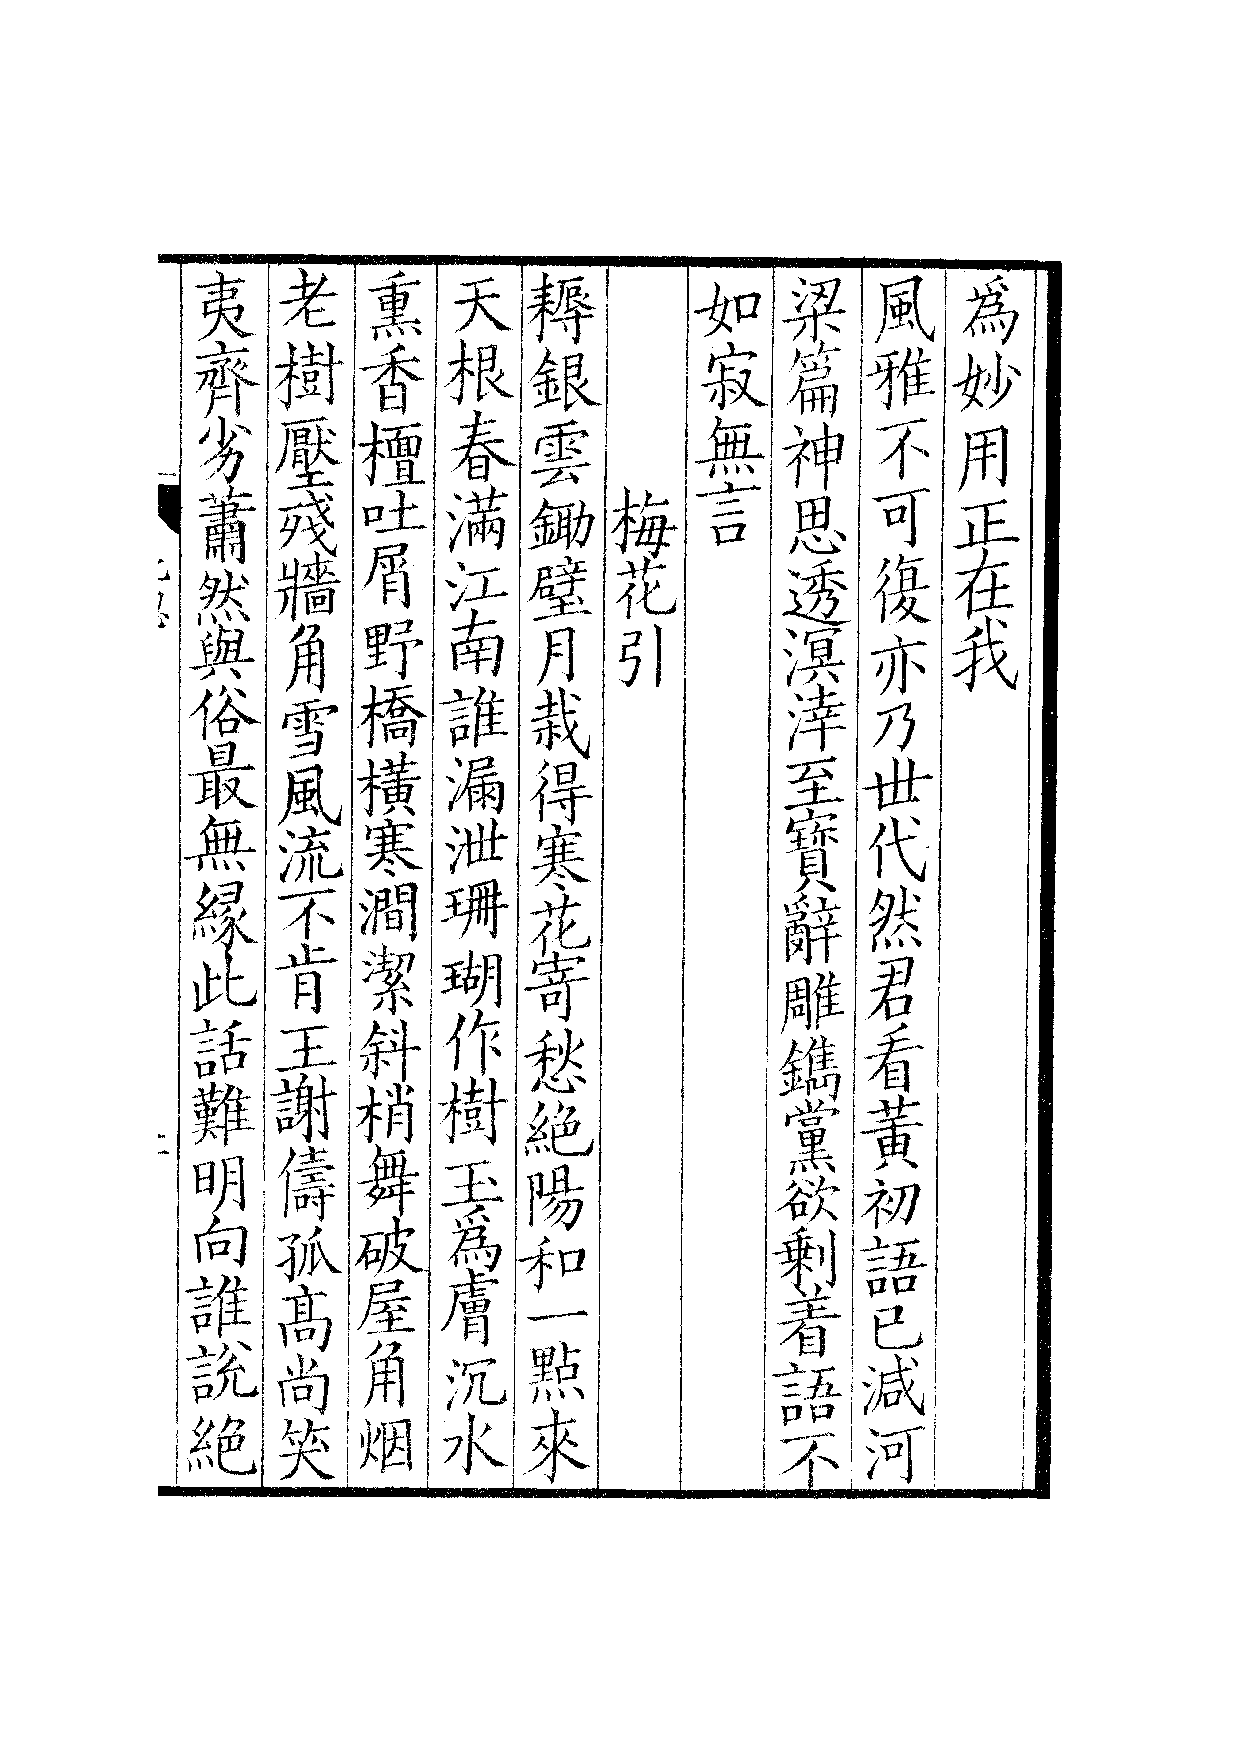 為妙用正在我
風雅不可復亦乃世代然君看黃初語已減河
梁篇神思透溟涬至寶辭雕鐫黨欲剩着語不
如寂無言
梅花引
耨銀雲鋤璧月栽得寒花寄愁絶陽和一點來
天根春滿江南誰漏泄珊瑚作樹玉為膚沉水
熏香檀吐屑野橋橫寒澗潔斜梢舞破屋角烟
老樹壓殘牆角雪風流不肯王謝儔孤髙尚笑
夷齊劣蕭然與俗最無縁此話難明向誰說絶